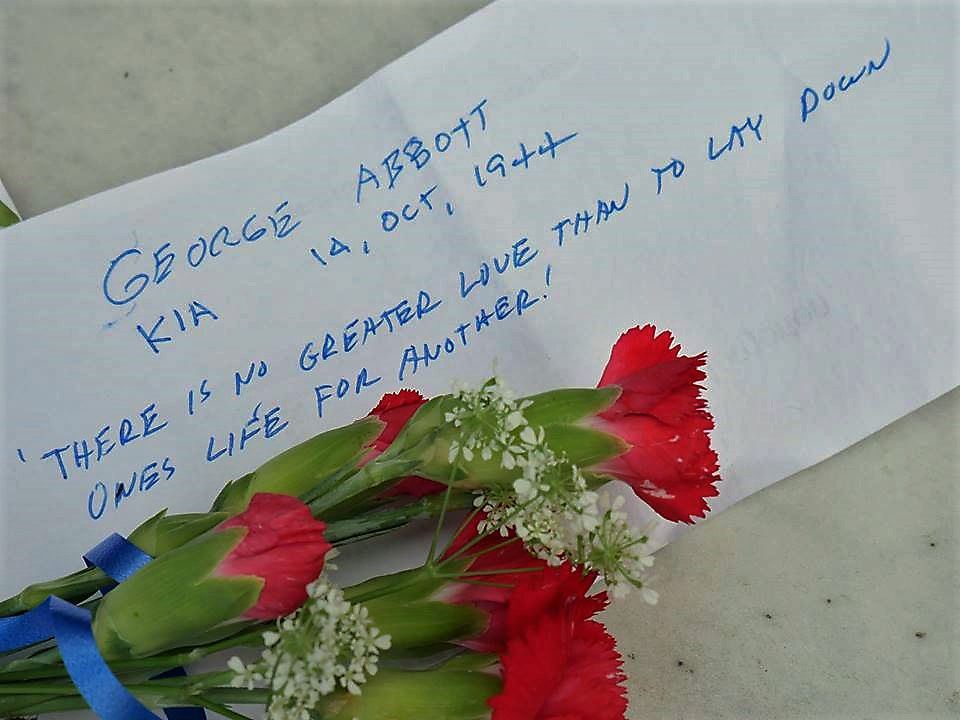 GEORGE ABBOTT
KIA 14, OCT, 1944
'THERE IS NO GREATER LOVE THAN TO LAY DOWN
ONES LIFE FOR ANOTHER!